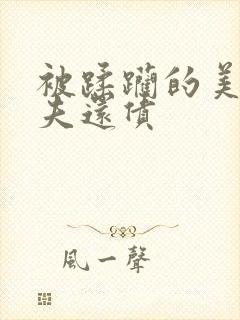 被蹂躪的美
夫還債
風一聲